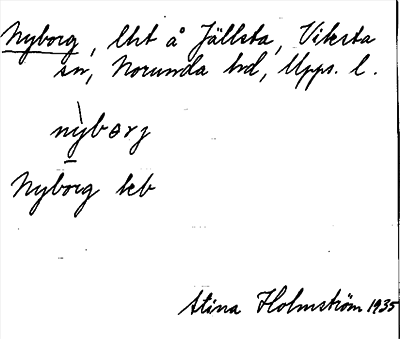 Nyborg, lht å Jällsta, Viksta
sn, Norunda hd, Upps. l.
nẏ̀bɷrj
Nyborg kb
Stina Holmström 1935